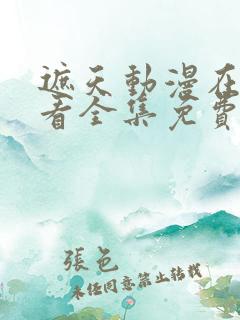 遮天動漫在
看全集免費
張色
未经同意禁止转载